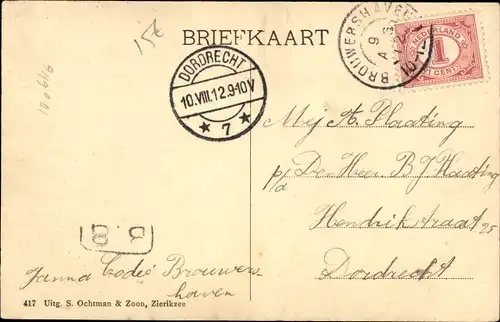 BRIEFKAART
15c
BROUWERSHAVEN
NEDERLAND
1
CENT
DORDRECHT
10.VIII.12.9-10V
★ 7 ★
Mej A. Plaating
p/a Den Heer B J Plaating
Hendrikstraat 25
Dordrecht
B B
Janna Codié Brouwers
haven
417 Uitg. S. Ochtman & Zoon, Zierikzee